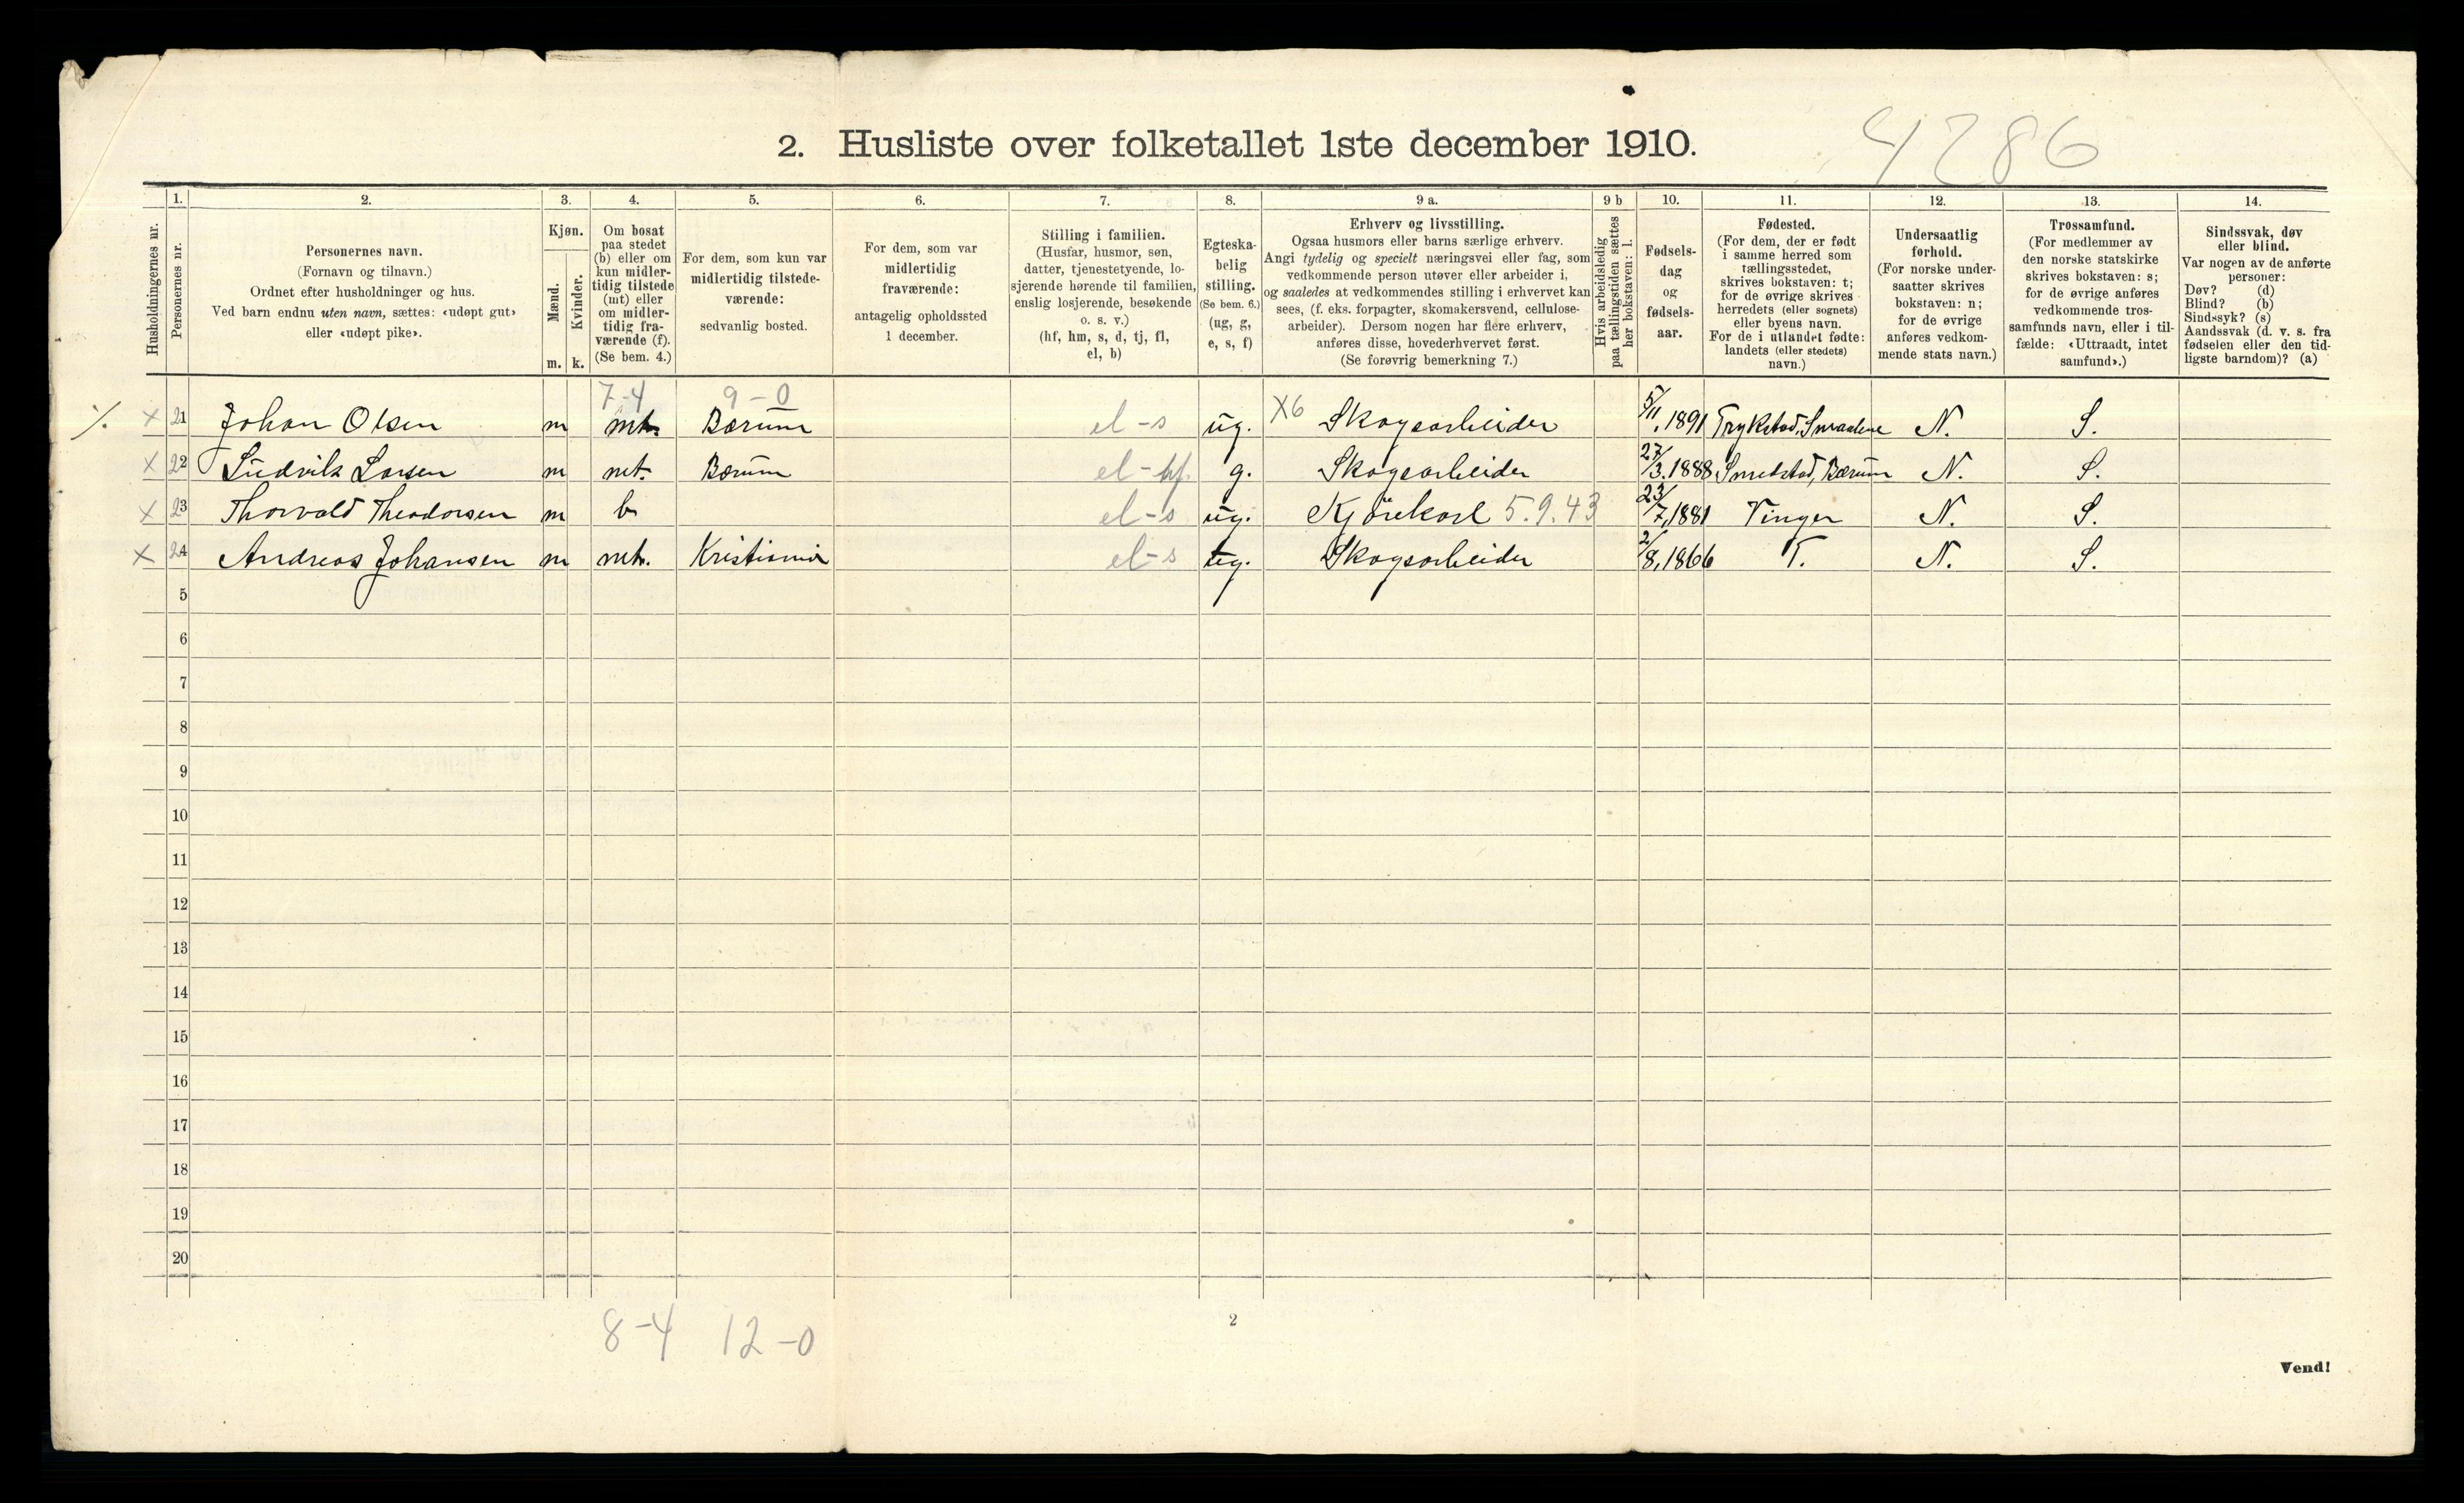 4286
2. Husliste over folketallet 1ste december 1910.
Husholdningernes nr.
1. Personernes nr.
2. Personernes navn. (Fornavn og tilnavn.) Ordnet efter husholdninger og hus. Ved barn endnu uten navn, sættes: «udøpt gut» eller «udøpt pike».
3. Kjøn. Mænd. m. Kvinder. k.
4. Om bosat paa stedet (b) eller om kun midlertidig tilstede (mt) eller om midlertidig fraværende (f). (Se bem. 4.)
5. For dem, som kun var midlertidig tilstedeværende: sedvanlig bosted.
6. For dem, som var midlertidig fraværende: antagelig opholdssted 1 december.
7. Stilling i familien. (Husfar, husmor, søn, datter, tjenestetyende, losjerende hørende til familien, enslig losjerende, besøkende o. s. v.) (hf, hm, s, d, tj, fl, el, b)
8. Egteskabelig stilling. (Se bem. 6.) (ug, g, e, s, f)
9 a. Erhverv og livsstilling. Ogsaa husmors eller barns særlige erhverv. Angi tydelig og specielt næringsvei eller fag, som vedkommende person utøver eller arbeider i, og saaledes at vedkommendes stilling i erhvervet kan sees, (f. eks. forpagter, skomakersvend, cellulosearbeider). Dersom nogen har flere erhverv, anføres disse, hovederhvervet først. (Se forøvrig bemerkning 7.)
9 b Hvis arbeidsledig paa tællingstiden sættes her bokstaven: l.
10. Fødselsdag og fødselsaar.
11. Fødested. (For dem, der er født i samme herred som tællingsstedet, skrives bokstaven: t; for de øvrige skrives herredets (eller sognets) eller byens navn. For de i utlandet fødte: landets (eller stedets) navn.)
12. Undersaatlig forhold. (For norske undersaatter skrives bokstaven: n; for de øvrige anføres vedkommende stats navn.)
13. Trossamfund. (For medlemmer av den norske statskirke skrives bokstaven: s; for de øvrige anføres vedkommende trossamfunds navn, eller i tilfælde: «Uttraadt, intet samfund».)
14. Sindssvak, døv eller blind. Var nogen av de anførte personer: Døv? (d) Blind? (b) Sindssyk? (s) Aandssvak (d. v. s. fra fødselen eller den tidligste barndom)? (a)
7-4 9-0
X 21 Johan Olsen m mt. Bærum el-s ug. X6 Skogsarbeider 5/11, 1891 Trykstad, Smaalene N. S.
X 22 Ludvik Larsen m mt. Bærum el-hf g. Skogsarbeider 27/3. 1888 Smedstad, Bærum N. S.
X 23 Thorvald Theodorsen m b el-s ug. Kjørekarl 5.9.43 23/7, 1881 Vinger N. S.
X 24 Andreas Johansen m mt. Kristiania el-s ug. Skogsarbeider 2/8, 1866 T. N. S.
5
6
7
8
9
10
11
12
13
14
15
16
17
18
19
20
8-4 12-0
2
Vend!